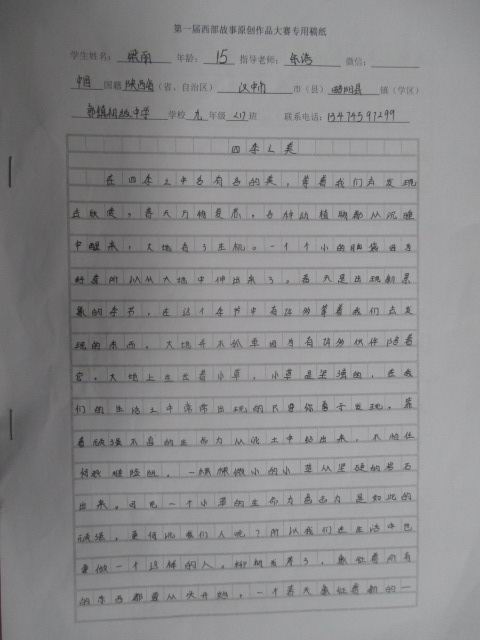 第一届西部故事原创作品大赛专用稿纸
学生姓名: 梁雨 年龄: 15 指导老师: 东浩 微信:
中国 国籍 陕西省 (省、自治区) 汉中市 市(县) 略阳县 镇(学区)
郭镇初级中学 学校 九 年级 <1> 班 联系电话: 13474597299
四季之美
在四季之中各有各的美,等着我们去发现
去欣赏,春天万物复苏,各种动植物都从沉睡
中醒来,大地有了生机。一个个小的脑袋因为
好奇所以从大地中伸出来了。春天是出现新景
象的季节,在这个季节中有许多等着我们去发
现的东西。大地并不孤单因为有许多伙伴陪着
它。大地上生长着小草,小草是坚强的,在我
们的生活之中常常出现的只要你勇于发现,靠
着顽强不息的生命力从泥土中钻出来,不怕任
何艰难险阻,一棵棵微小的小草从坚硬的岩石
出来。可见一个小草的生命力
顽强,更何况我们人呢?所以我们在生活中也
要做一个这样的人。柳树发芽了,象征着所有
的东西都要从头开始,一个春天象征着新的一